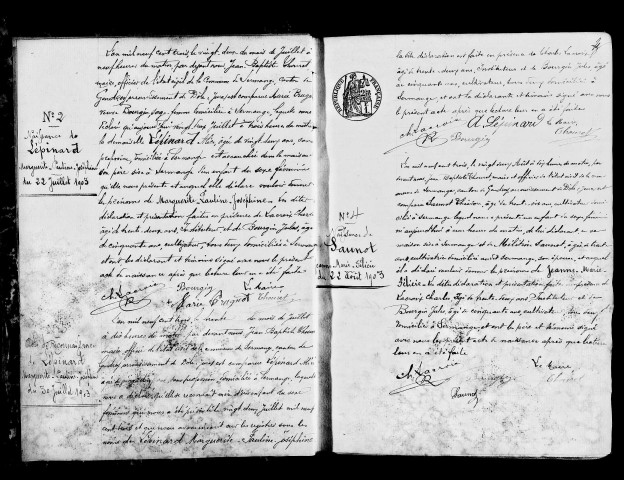 Nº 2
Naissance de
Lépinard
Marguerite-Pauline-Joséphine
du 22 Juillet 1903
L'an mil neuf cent trois, le vingt deux du mois de Juillet à
neuf heures du matin, par devant nous Jean Baptiste Thouret
maire, officier de l'état civil de la Commune de Sermange, canton de
Gendrey, arrondissement de Dôle, Jura, est comparue Marie
Bourgin, sage femme domiciliée à Sermange, laquelle nous
a déclaré qu'aujourd'hui vingt deux Juillet à trois heures du matin
la demoiselle Lépinard Alix, âgée de vingt deux ans, sans
profession, domiciliée à Sermange est accouchée dans la maison
de son père sise à Sermange d'un enfant du sexe féminin
qu'elle nous présente et auquel elle déclare vouloir donner
les prénoms de Marguerite-Pauline-Joséphine. Les dites
déclaration et présentation faites en présence de Lacroix Charles
âgé de trente deux ans, Instituteur, et de Bourgin Jules, âgé
de cinquante ans, cultivateur, tous deux domiciliés à Sermange
et ont le déclarant et témoins signé avec nous le présent
acte de naissance après que lecture leur en a été faite
Ch. Lacroix Bourgin Le Maire
Marie Thouret
Reconnaissance
de Lépinard
Marguerite-Pauline-Joséphine
du 30 Juillet 1903
L'an mil neuf cent trois, le trente du mois de Juillet
à dix heures du matin, par devant nous Jean Baptiste Thouret
maire officier de l'état civil de la commune de Sermange, canton de
Gendrey, arrondissement de Dôle, Jura, est comparue Lépinard Alix
sans profession, domiciliée à Sermange, laquelle nous
a déclaré qu'elle reconnaît un enfant du sexe
féminin le vingt deux Juillet mil neuf
cent trois et que nous avons inscrit sur les registres sous les
noms de Lépinard Marguerite-Pauline-Joséphine
4
La dite déclaration est faite en présence de Charles Lacroix
âgé de trente deux ans, Instituteur et de Bourgin Jules, âgé
de cinquante ans, cultivateur, tous deux domiciliés à
Sermange et ont la déclarante et témoins signé avec nous
le présent acte après que lecture leur en a été faite
Ch. Lacroix A. Lépinard Le Maire
Bourgin Thouret
RÉPUBLIQUE FRANÇAISE
Nº 4
Naissance de
Saunot
Jeanne-Marie-Félicie
du 22 Août 1903
L'an mil neuf cent trois, le vingt deux Août à dix heures du matin, par
devant nous, Jean Baptiste Thouret maire et officier de l'état civil de la com-
mune de Sermange, canton de Gendrey, arrondissement de Dôle, Jura, est
comparu Saunot
âgé de trente six ans, cultivateur domi-
cilié à Sermange lequel nous a présenté un enfant du sexe féminin
né aujourd'hui à une heure du matin, de lui déclarant en sa
maison sise à Sermange et de
Saunot, âgée de trente
ans cultivatrice domiciliée audit Sermange, son épouse, et auquel
il a déclaré vouloir donner les prénoms de Jeanne-Marie-
Félicie. Les dites déclaration et présentation faites en présence de
Lacroix Charles âgé de trente deux ans Instituteur et de
Bourgin Jules, âgé de cinquante ans cultivateur, tous deux
domiciliés à Sermange et ont le père et témoins signé
avec nous le présent acte de naissance après que lecture
leur en a été faite
Ch. Lacroix Le Maire
Bourgin Thouret
Saunot